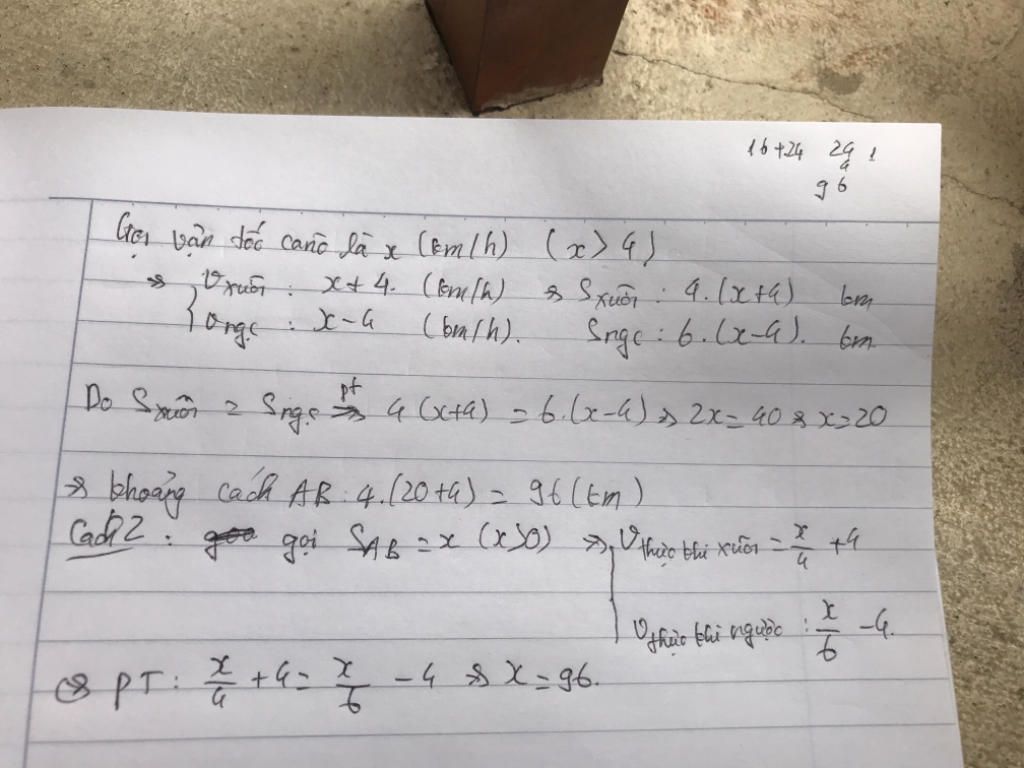 16+24 24 1
4
96
Gọi vận tốc canô là x (km/h) (x > 4)
=> Vxuôi : x+4. (km/h) => Sxuôi : 4.(x+4) km
Vngc : x-4 (km/h). Sngc : 6.(x-4). km
Do Sxuôi = Sngc pt=> 4(x+4) = 6.(x-4) => 2x=40 => x=20
=> khoảng cách AB : 4.(20+4) = 96 (km)
Cách 2 : gọi SAB = x (x>0) => Vthực khi xuôi = x/4 +4
Vthực khi ngược : x/6 -4.
=> PT : x/4 +4 = x/6 -4 => x=96.